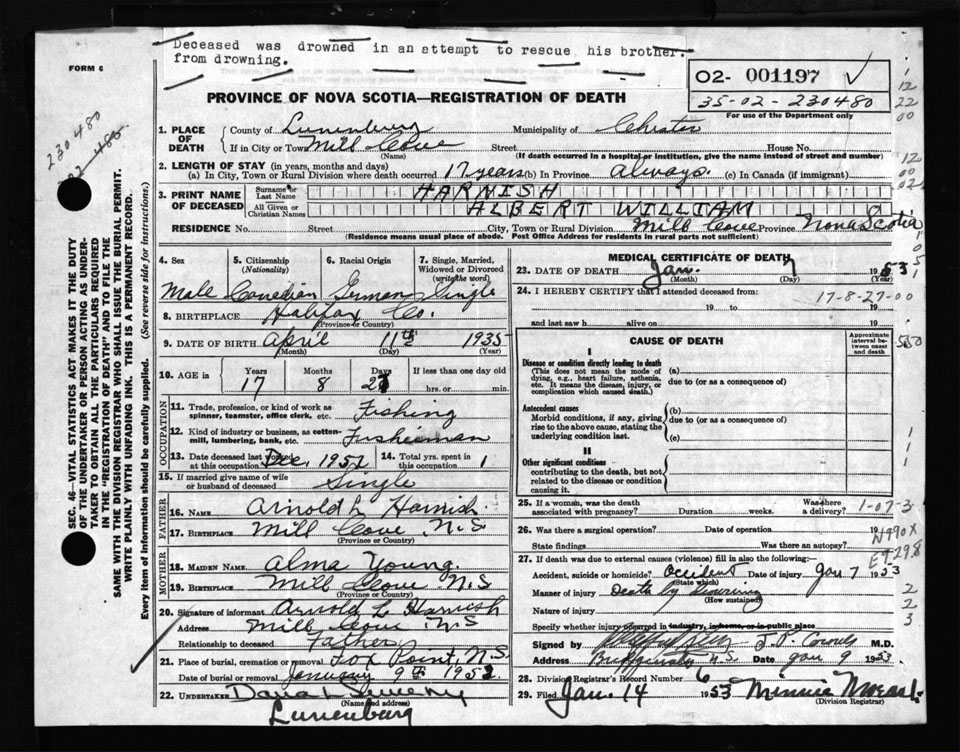 Deceased was drowned in an attempt to rescue his brother.
from drowning.
FORM 6
02- 001197
35-02-230480
For use of the Department only
PROVINCE OF NOVA SCOTIA—REGISTRATION OF DEATH
230480
SEC. 46—VITAL STATISTICS ACT MAKES IT THE DUTY
OF THE UNDERTAKER OR PERSON ACTING AS UNDER-
TAKER TO OBTAIN ALL THE PARTICULARS REQUIRED
IN THE "REGISTRATION OF DEATH" AND TO FILE THE
SAME WITH THE DIVISION REGISTRAR WHO SHALL ISSUE THE BURIAL PERMIT.
WRITE PLAINLY WITH UNFADING INK. THIS IS A PERMANENT RECORD.
Every item of information should be carefully supplied. (See reverse side for instructions.)
1. PLACE OF DEATH
County of Lunenburg Municipality of Chester
If in City or Town Mill Cove Street House No.
(Name) (If death occurred in a hospital or institution, give the name instead of street and number)
2. LENGTH OF STAY (in years, months and days)
(a) In City, Town or Rural Division where death occurred 17 years (b) In Province Always. (c) In Canada (if immigrant)
3. PRINT NAME OF DECEASED
Surname or Last Name HARNISH
All Given or Christian Names ALBERT WILLIAM
RESIDENCE No. Street City, Town or Rural Division Mill Cove Province Nova Scotia
(Residence means usual place of abode. Post Office Address for residents in rural parts not sufficient)
4. Sex 5. Citizenship (Nationality) 6. Racial Origin 7. Single, Married, Widowed or Divorced (write the word)
Male Canadian German Single
8. BIRTHPLACE Halifax Co.
(Province or Country)
9. DATE OF BIRTH April 11th 1935
(Month) (Day) (Year)
10. AGE in Years Months Days If less than one day old
17 8 27 hrs. or min.
OCCUPATION
11. Trade, profession, or kind of work as spinner, teamster, office clerk, etc. Fishing
12. Kind of industry or business, as cotton-mill, lumbering, bank, etc. Fusheiman
13. Date deceased last worked at this occupation Dec. 1952 14. Total yrs. spent in this occupation 1
15. If married give name of wife or husband of deceased Single
FATHER
16. NAME Arnold L Harnish.
17. BIRTHPLACE Mill Cove, N.S
(Province or Country)
MOTHER
18. MAIDEN NAME Alma Young.
19. BIRTHPLACE Mill Cove N.S
(Province or Country)
20. Signature of informant Arnold L Harnish
Address Mill Cove, N.S
Relationship to deceased Father
21. Place of burial, cremation or removal Fox Point, N.S.
Date of burial or removal January 9th 1953
22. UNDERTAKER
(Name and address)
Lunenburg
MEDICAL CERTIFICATE OF DEATH
23. DATE OF DEATH Jan. 7 1953
(Month) (Day) (Year)
24. I HEREBY CERTIFY that I attended deceased from:
17-8-27-00
19 to 19
and last saw h alive on 19
CAUSE OF DEATH
Approximate interval between onset and death
I
Disease or condition directly leading to death
(This does not mean the mode of dying, e.g., heart failure, asthenia, etc. It means the disease, injury, or complication which caused death.)
(a)
due to (or as a consequence of)
Antecedent causes
Morbid conditions, if any, giving rise to the above cause, stating the underlying condition last.
(b)
due to (or as a consequence of)
(c)
II
Other significant conditions
contributing to the death, but not related to the disease or condition causing it.
25. If a woman, was the death associated with pregnancy? Duration weeks. Was there a delivery?
1-07-3
26. Was there a surgical operation? Date of operation 19
State findings Was there an autopsy?
N990X
E9298
27. If death was due to external causes (violence) fill in also the following:
Accident, suicide or homicide? Accident Date of injury Jan 7 1953
(State which)
Manner of injury Death by drowning
(How sustained)
Nature of injury
Specify whether injury occurred in industry, in home, or in public place
Signed by M.D.
Address Bridgewater N.S. Date Jan 9 1953
28. Division Registrar's Record Number 6
29. Filed Jan. 14 1953 Minnie
(Division Registrar)